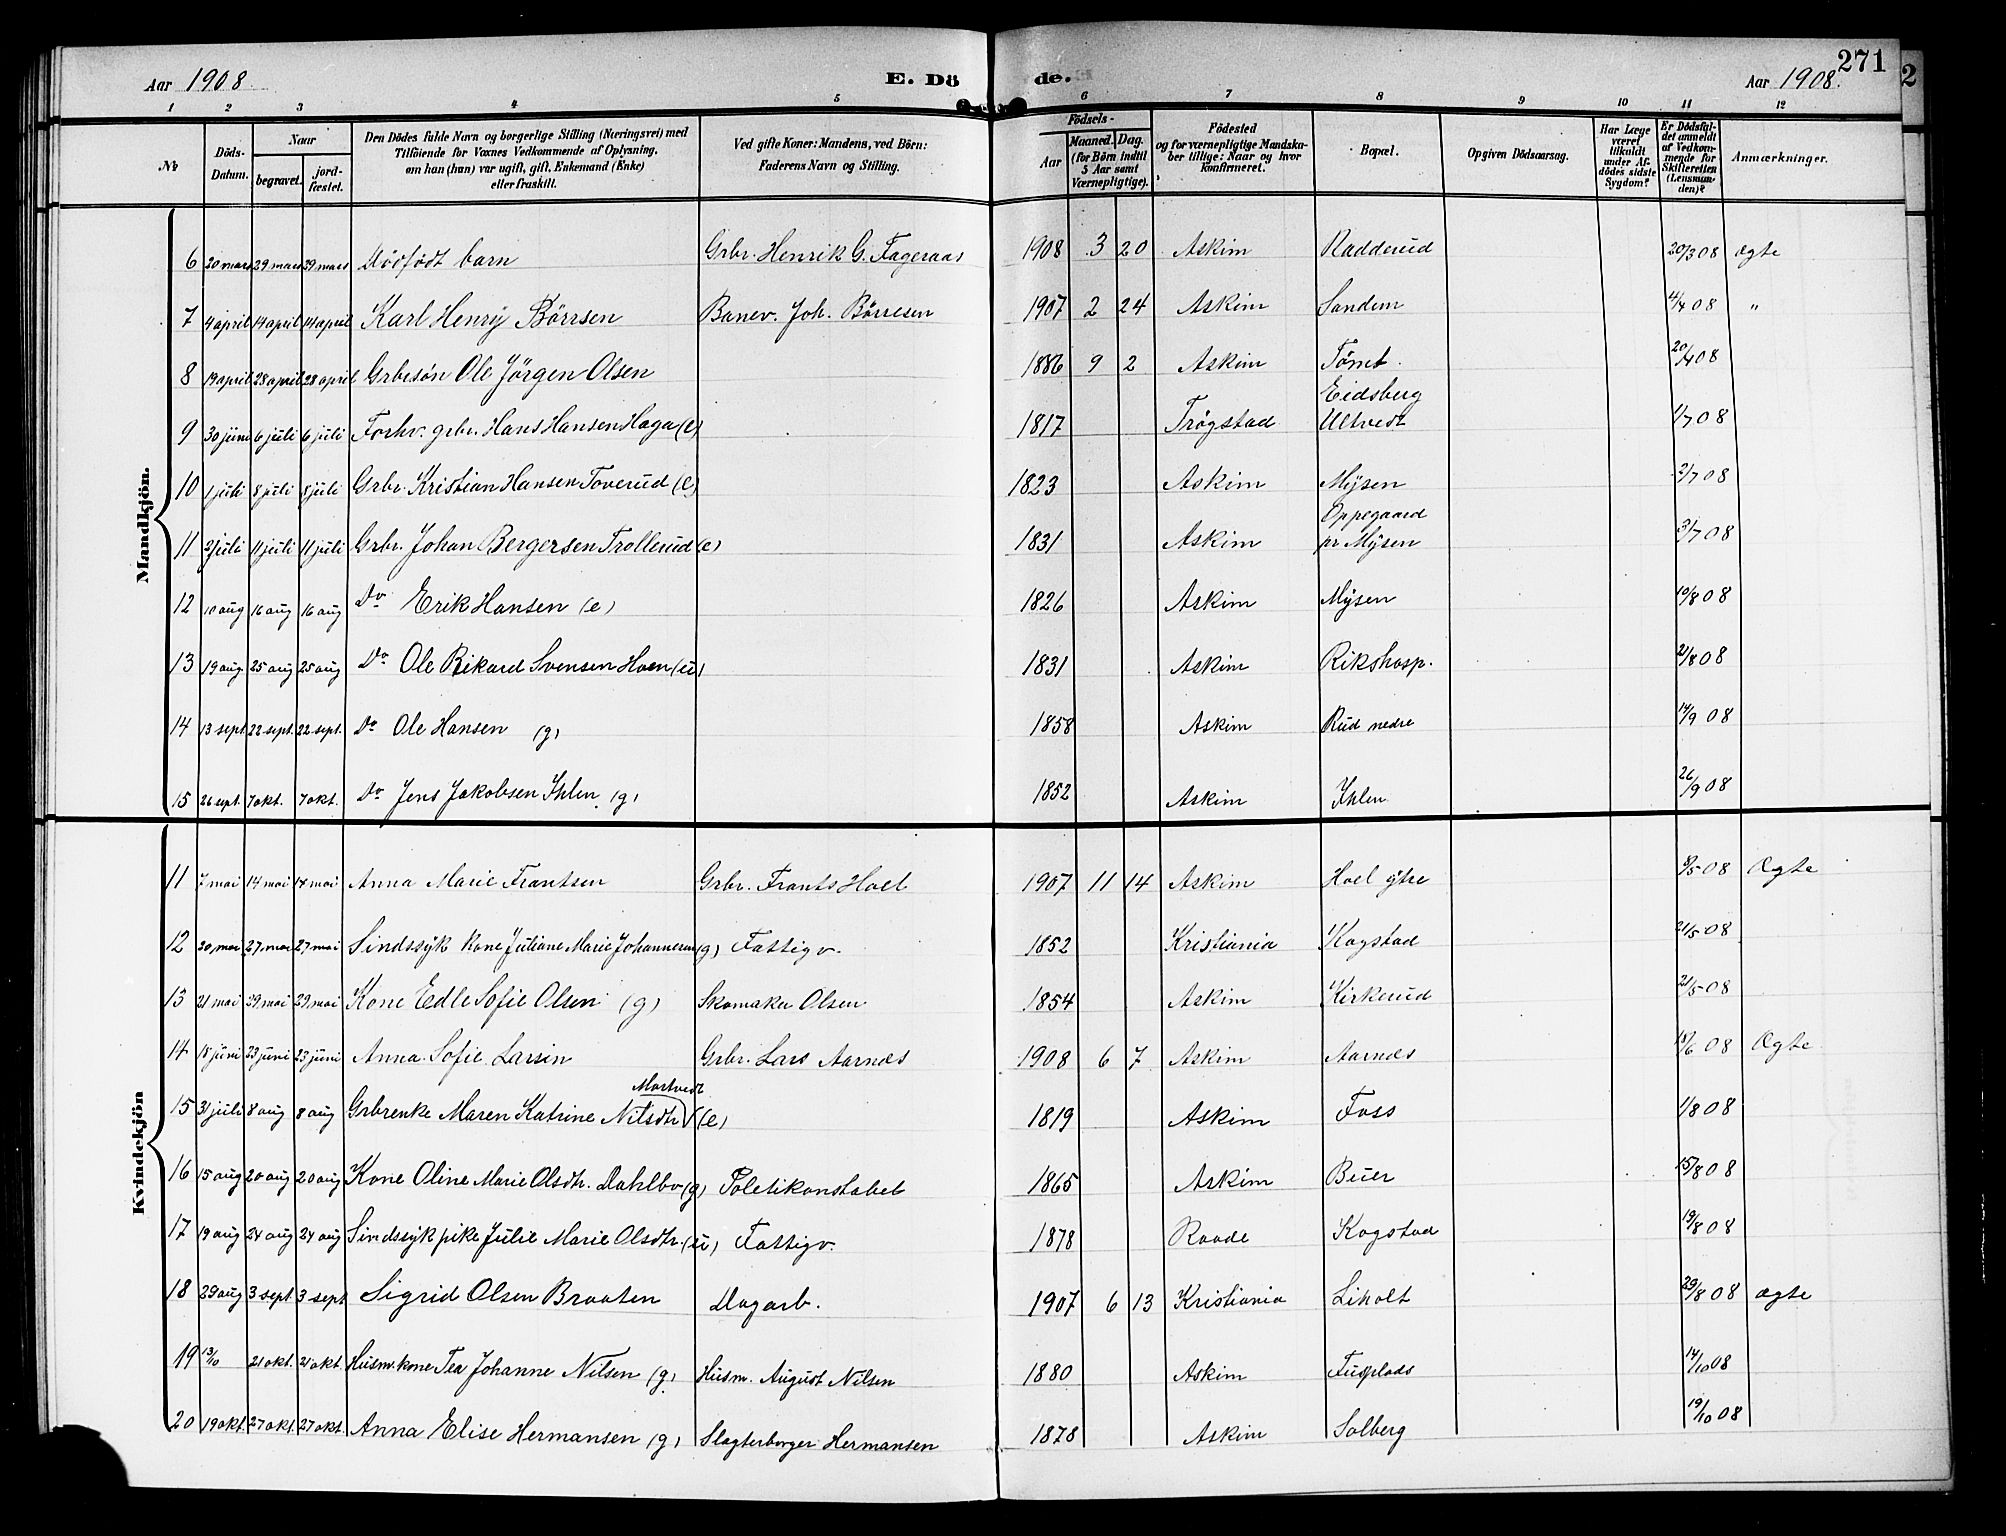 271
Aar 1908. E. Döde. Aar 1908.
1 2 3 4 5 6 7 8 9 10 11 12
No
Döds-Datum.
Naar
begravet. jord-fæstet.
Den Dödes fulde Navn og borgerlige Stilling (Næringsvei) med
Tilföiende for Voxnes Vedkommende af Oplysning,
om han (hun) var ugift, gift, Enkemand (Enke)
eller fraskilt.
Ved gifte Koner: Mandens, ved Börn:
Faderens Navn og Stilling.
Födsels-
Aar Maaned. Dag.
(for Börn indtil
5 Aar samt
Værnepligtige).
Födested
og for værnepligtige Mandska-
ber tillige: Naar og hvor
konfirmeret.
Bopæl.
Opgiven Dödsaarsag.
Har Læge
været
tilkaldt
under Af-
dödes sidste
Sygdom?
Er Dödsfal-
det anmeldt
af Vedkom-
mende for
Skifteretten
(Lensman-
den)?
Anmærkninger.
Mandkjön.
6 20 mars 29 mars 29 mars Dödfödt barn Grbr. Henrik G. Fageraas 1908 3 20 Askim Radderud 20/3 08 Ægte
7 4 april 14 april 14 april Karl Henry Börrsen Banev. Joh. Börresen 1907 2 24 Askim Sandem 4/4 08 "
8 19 april 28 april 28 april Grbesön Ole Jörgen Olsen 1886 9 2 Askim Tömt. 20/4 08
9 30 juni 6 juli 6 juli Forhv. grbr. Hans Hansen Haga (e) 1817 Trögstad Eidsberg Ultvedt 1/7 08
10 1 juli 8 juli 8 juli Grbr. Kristian Hansen Toverud (e) 1823 Askim Mysen 2/7 08
11 2 juli 11 juli 11 juli Grbr. Johan Bergersen Trollerud (e) 1831 Askim Oppegaard pr Mysen 3/7 08
12 10 aug 16 aug 16 aug Do Erik Hansen (e) 1826 Askim Mysen 10/8 08
13 19 aug. 25 aug 25 aug Do Ole Rikard Svensen Hoen (u) 1831 Askim Rikshosp. 21/8 08
14 13 sept. 22 sept. 22 sept. Do Ole Hansen (g) 1858 Askim Rud nedre 14/9 08
15 26 sept. 7 okt. 7 okt. Do Jens Jakobsen Ihlen (g) 1852 Askim Ihlen 26/9 08
Kvindekjön
11 7 mai 14 mai 14 mai Anna Marie Frantsen Grbr. Frants Hoel 1907 11 14 Askim Hoel ytre 8/5 08 Ægte
12 20 mai 27 mai 27 mai Sindssyk kone Juliane Marie Johannesen (g) Fattigv. 1852 Kristiania Kogstad 21/5 08
13 21 mai 29 mai 29 mai Kone Edle Sofie Olsen (g) Skomaker Olsen 1854 Askim Kirkerud 21/5 08
14 18 juni 23 juni 23 juni Anna Sofie Larsin Grbr. Lars Aarnæs 1908 6 7 Askim Aarnæs 18/6 08 Ægte
15 31 juli 8 aug 8 aug Grbrenke Maren Katrine Nilsdtr Mortvedt (e) 1819 Askim Foss 1/8 08
16 15 aug 20 aug 20 aug Kone Oline Marie Olsdtr. Dahlbo (g) Poletikonstabel 1865 Askim Buer 15/8 08
17 19 aug 24 aug 24 aug Sindssyk pike Julie Marie Olsdtr. (u) Fattigv. 1878 Raade Kogstad 19/8 08
18 29 aug 3 sept 3 sept Sigrid Olsen Braaten Dagarb. 1907 6 13 Kristiania Liholt 29/8 08 Ægte
19 13/10 21 okt. 21 okt. Husm. kone Tea Johanne Nilsen (g) Husm. August Nilsen 1880 Askim 14/10 08
20 19 okt. 27 okt. 27 okt. Anna Elise Hermansen (g) Slagterborger Hermansen 1878 Askim Solberg 19/10 08